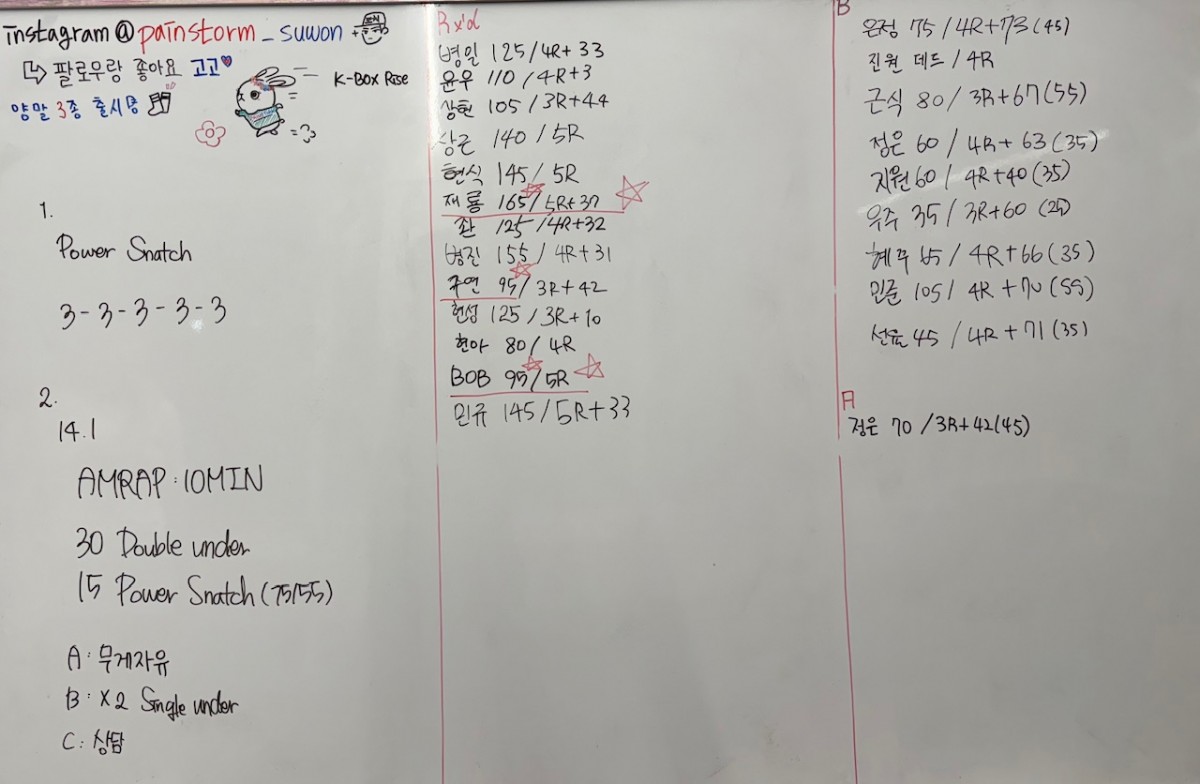 instagram@painstorm_suwon
팔로우랑 좋아요 고고
양말 3종 출시중
K-Box Rise
1.
Power Snatch
3-3-3-3-3
2.
14.1
AMRAP:10MIN
30 Double under
15 Power Snatch (75/55)
A: 무게자유
B: X2 Single under
C: 상담
Rx'd
병일 125/4R+33
윤우 110/4R+3
상현 105/3R+44
상근 140/5R
현식 145/5R
재룡 165/5R+37
좌 125/4R+32
병진 155/4R+31
주연 95/3R+42
현성 125/3R+10
현아 80/4R
BOB 95/5R
민규 145/5R+33
B
은정 75/4R+73(45)
진원 데드/4R
근식 80/3R+67(55)
정은 60/4R+63(35)
지원 60/4R+40(35)
우주 35/3R+60(25)
혜주 65/4R+66(35)
민준 105/4R+70(55)
선율 45/4R+71(35)
A
정은 70/3R+42(45)